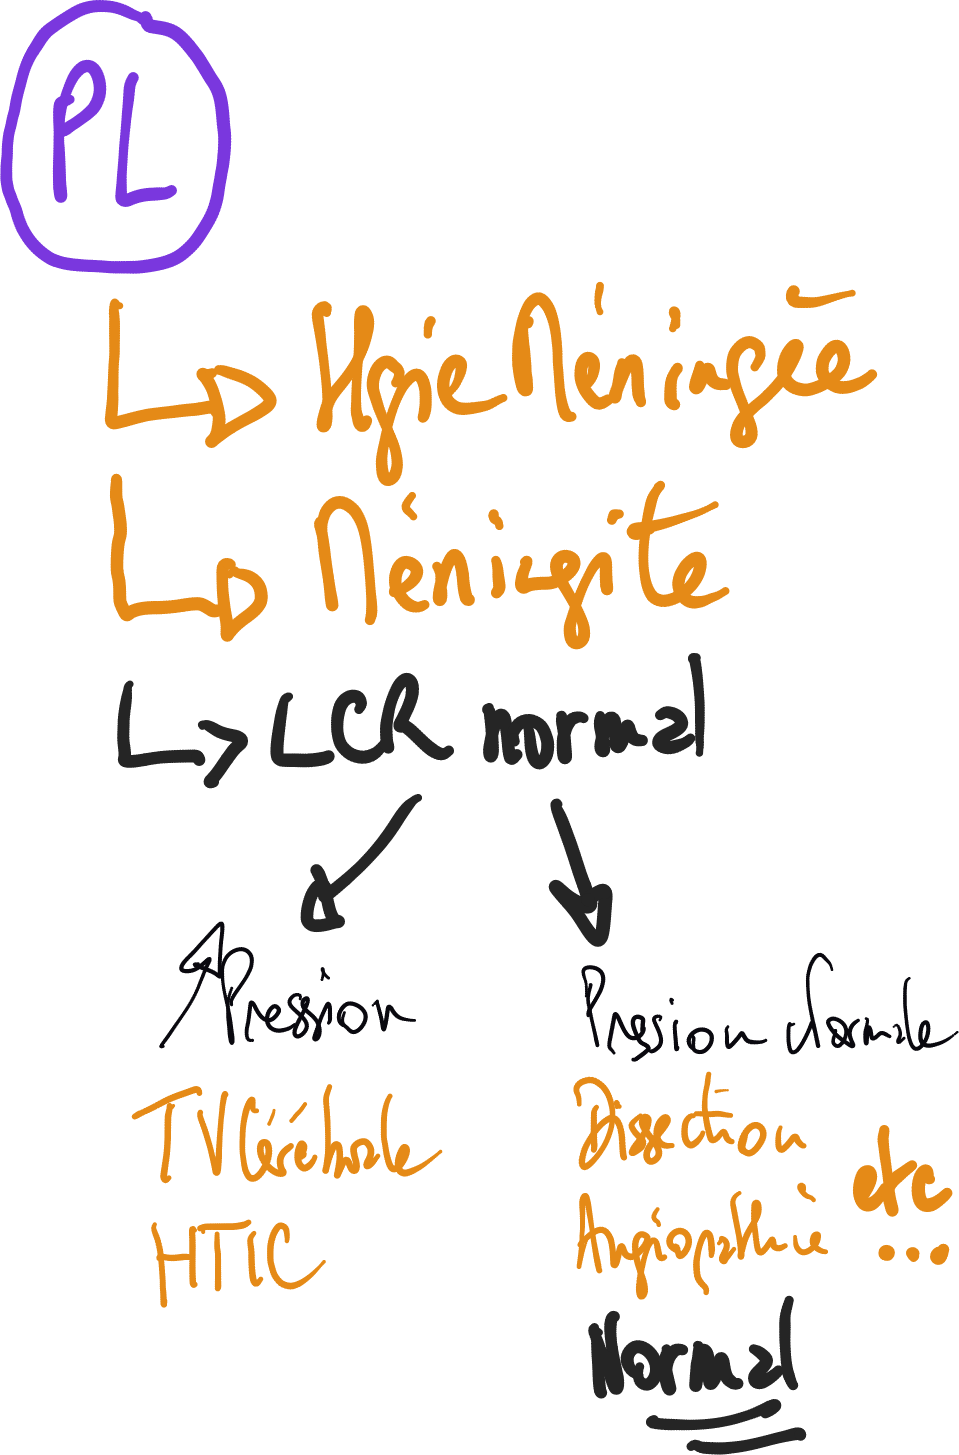 PL
Hgie Méningée
Méningite
LCR normal
Pression
Pression Normale
TV Cérébrale
HTIC
Dissection
Angiopathie
etc ...
Normal